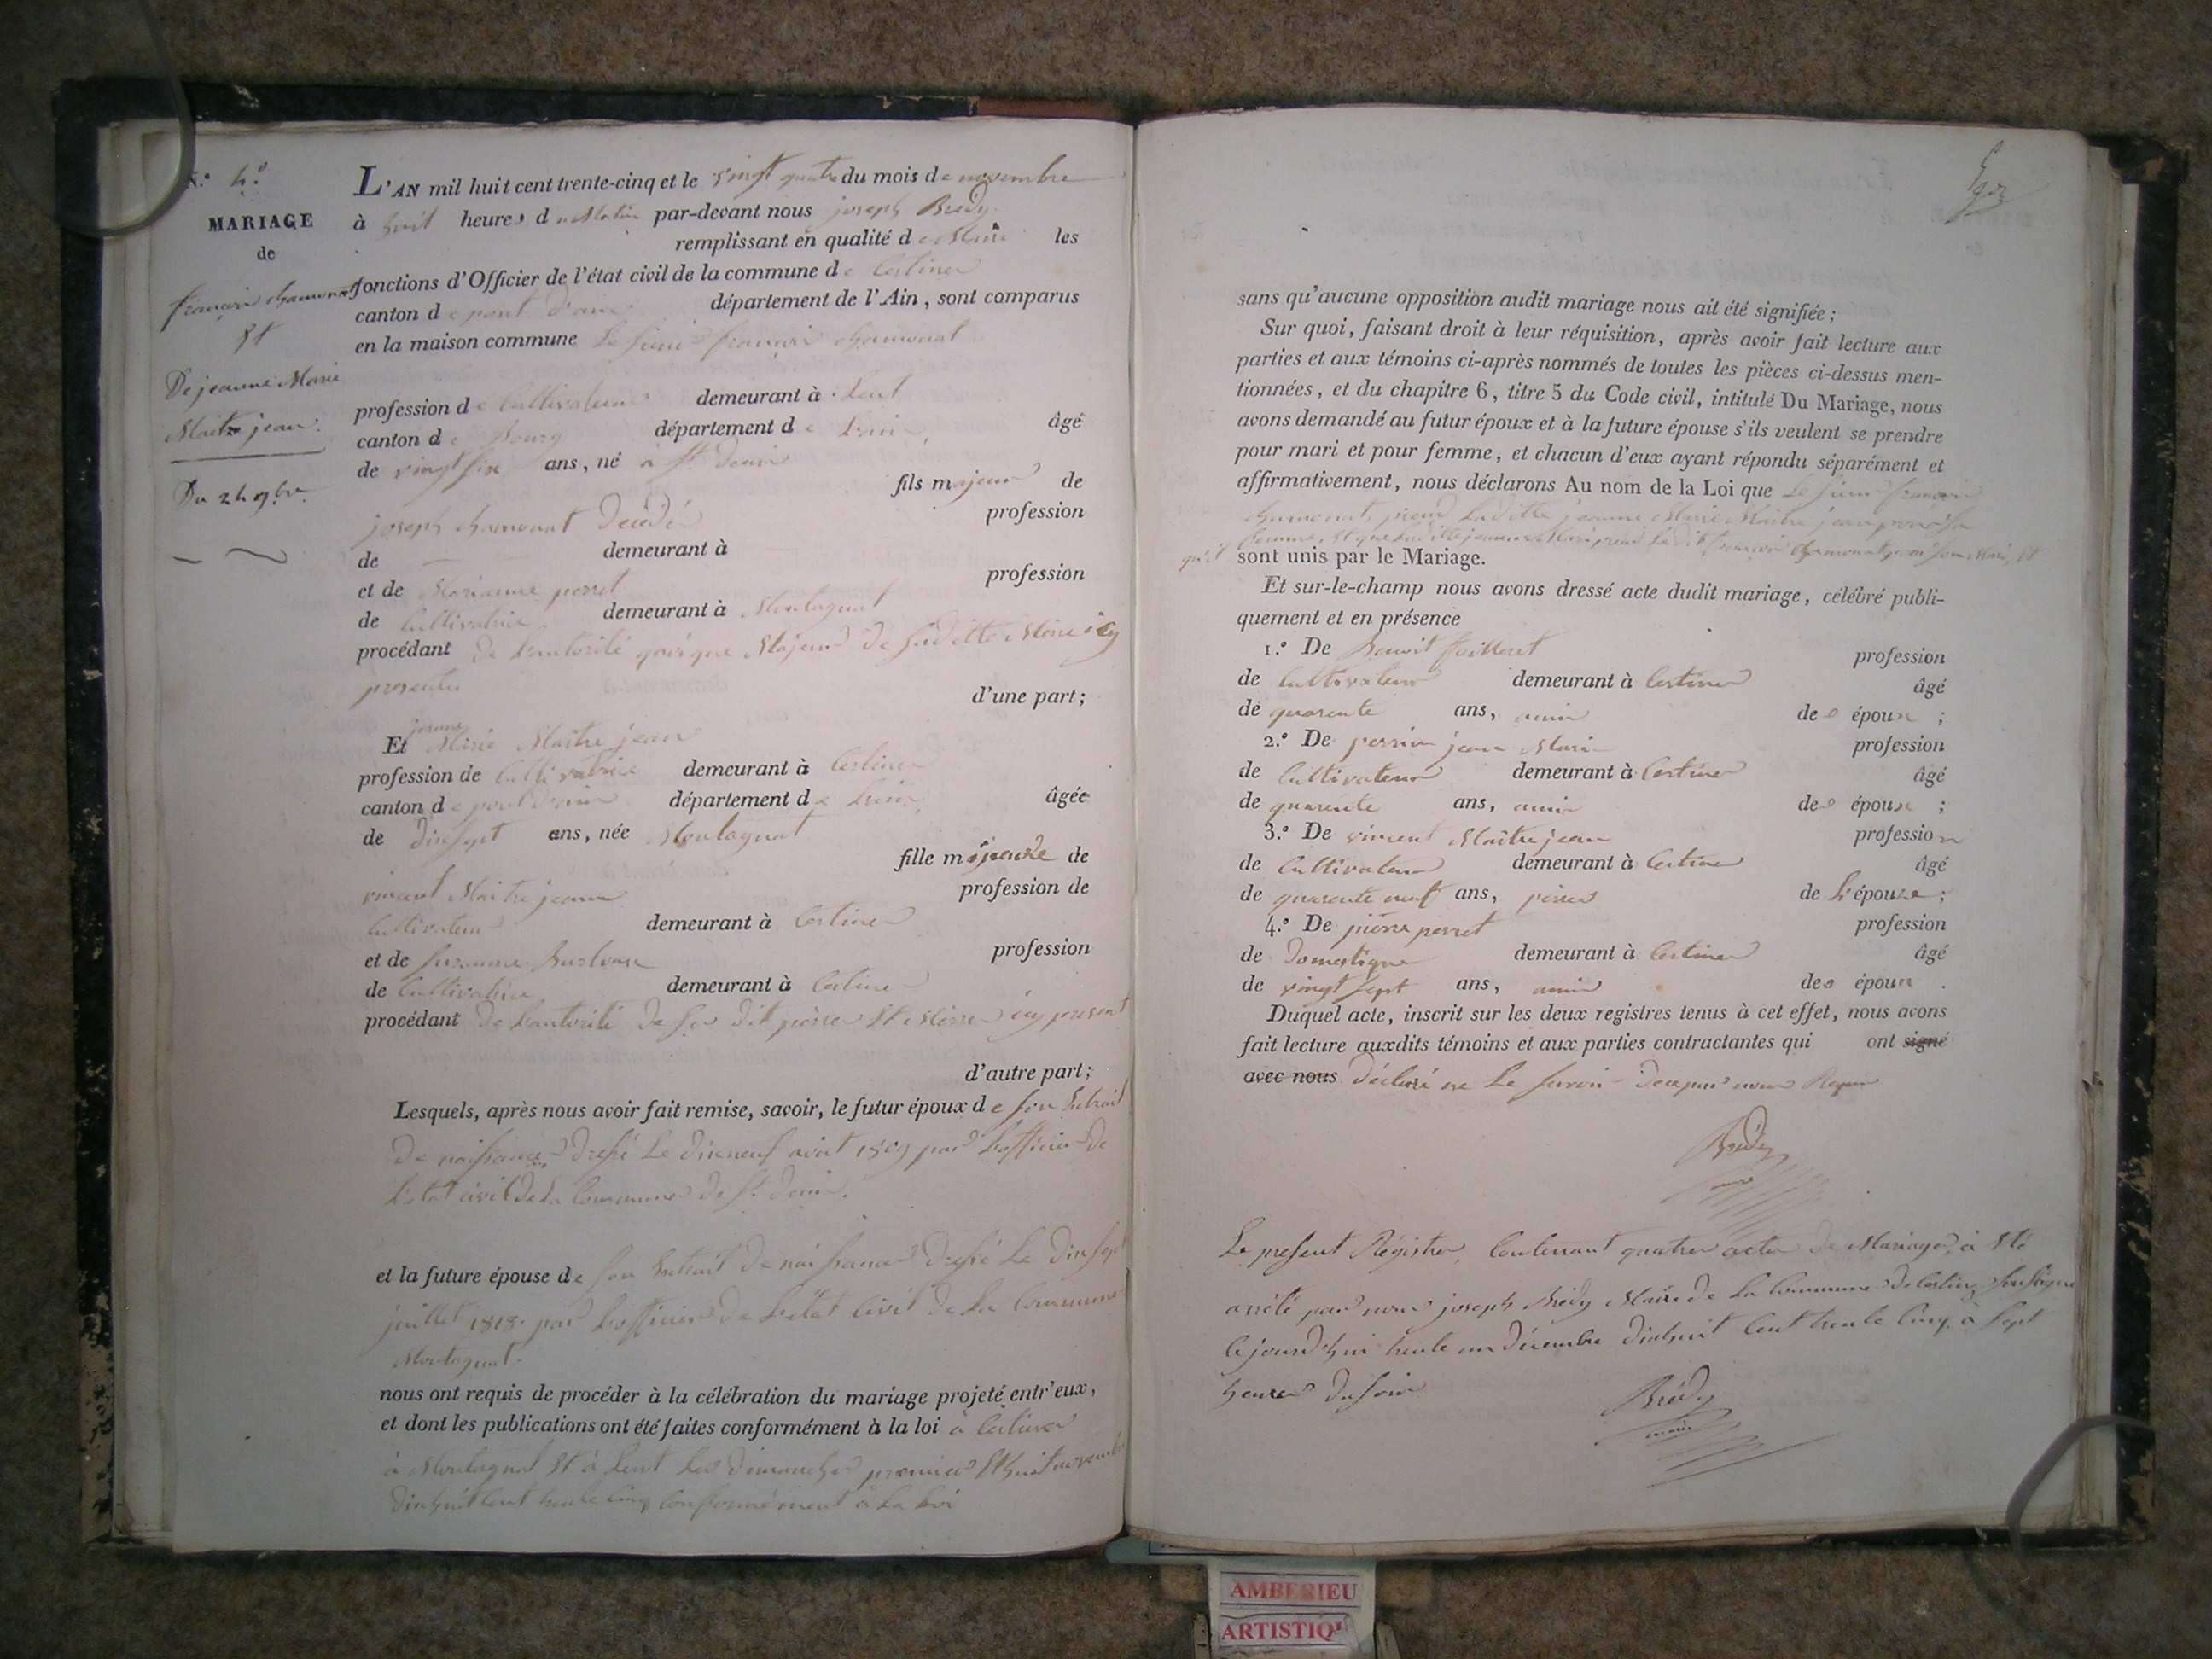 N.º 4.º
MARIAGE
de
françois chamonat
Et
De jeanne Marie
Maitre jean.
Du 24 9bre.
L'AN mil huit cent trente-cinq et le vingt quatre du mois de novembre
à huit heures du Matin par-devant nous joseph Bredy
remplissant en qualité de Maire les
fonctions d'Officier de l'état civil de la commune de Certines
canton de pont d'ain département de l'Ain, sont comparus
en la maison commune Le sieur françois chamonat
profession de Cultivateur demeurant à Lent
canton de Bourg département de L'ain, âgé
de vingt six ans, né à St. Denis
fils majeur de
joseph chamonat Décédé
profession
de demeurant à
et de Marianne perret
profession
de Cultivatrice demeurant à Montagnat
procédant de L'autorité quoique Majeur de sa ditte Mère icy
presente
d'une part;
Et jeanne Marie Maitre jean
profession de Cultivatrice demeurant à Certines
canton de pont d'ain département de L'ain, âgée
de dixsept ans, née Montagnat
fille mineure de
vincent Maitre jean
profession de
Cultivateur demeurant à Certines
et de Suzanne
profession
de Cultivatrice demeurant à Certines
procédant de L'autorité de ses dit père Et Mère icy present
d'autre part;
Lesquels, après nous avoir fait remise, savoir, le futur époux de son Extrait
de naissance dressé Le dixneuf aout 1809 par L'officier de
L'etat civil de La Commune de St. Denis.
et la future épouse de son Extrait de naissance dressé Le dixsept
juillet 1818. par L'officier de L'etat Civil de La Commune
Montagnat.
nous ont requis de procéder à la célébration du mariage projeté entr'eux,
et dont les publications ont été faites conformément à la loi à Certines
à Montagnat Et à Lent Les dimanches premier Et huit novembre
dixhuit Cent trente Cinq Conformément à La Loi
sans qu'aucune opposition audit mariage nous ait été signifiée;
Sur quoi, faisant droit à leur réquisition, après avoir fait lecture aux
parties et aux témoins ci-après nommés de toutes les pièces ci-dessus men-
tionnées, et du chapitre 6, titre 5 du Code civil, intitulé Du Mariage, nous
avons demandé au futur époux et à la future épouse s'ils veulent se prendre
pour mari et pour femme, et chacun d'eux ayant répondu séparément et
affirmativement, nous déclarons Au nom de la Loi que Le sieur françois
chamonat, prend Laditte jeanne Marie Maitre jean pour sa
femme, Et que Laditte jeanne Marie prend Ledit françois chamonat pour son Mari, Et
qu'il sont unis par le Mariage.
Et sur-le-champ nous avons dressé acte dudit mariage, célébré publi-
quement et en présence
1.º De Benoit
profession
de Cultivateur demeurant à Certines
âgé
de quarente ans, amis des époux;
2.º De perrin jean Marie
profession
de Cultivateur demeurant à Certines
âgé
de quarente ans, amis des époux;
3.º De vincent Maitre jean
profession
de Cultivateur demeurant à Certines
âgé
de quarente neuf ans, père de L'épouse;
4.º De pierre perret
profession
de Domestique demeurant à Certines
âgé
de vingt sept ans, amis des époux.
Duquel acte, inscrit sur les deux registres tenus à cet effet, nous avons
fait lecture auxdits témoins et aux parties contractantes qui ont signé
avec nous déclaré ne Le savoir de ce par nous Requis
Bredy
maire
Le present Régistre, Contenant quatre actes de Mariage, à Eté
arrêté par nous joseph Brédy Maire de La Commune de Certines soussigné
Cejourd'hui trente un décembre dixhuit Cent trente Cinq à sept
heures du soir
Brédy
maire
AMBERIEU
ARTISTIQ